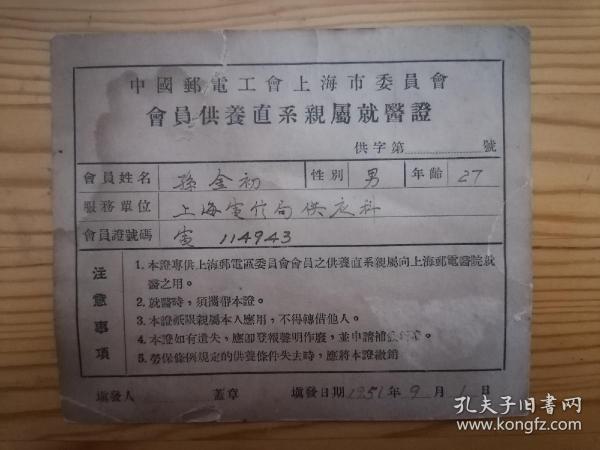 中國郵電工會上海市委員會
會員供養直系親屬就醫證
供字第 號
會員姓名 孫金初 性別 男 年齡 27
服務單位 上海電信局供应科
會員證號碼 電 114943
注意事項
1. 本證專供上海郵電區委員會會員之供養直系親屬向上海郵電醫院就
醫之用。
2. 就醫時，須攜帶本證。
3. 本證祇限親屬本人應用，不得轉借他人。
4. 本證如有遺失，應卽登報聲明作廢，並申請補發
5. 勞保條例規定的供養條件失去時，應將本證繳銷
塡發人 蓋章 塡發日期 1951年 9 月 1 日
孔夫子旧书网
www.kongfz.com